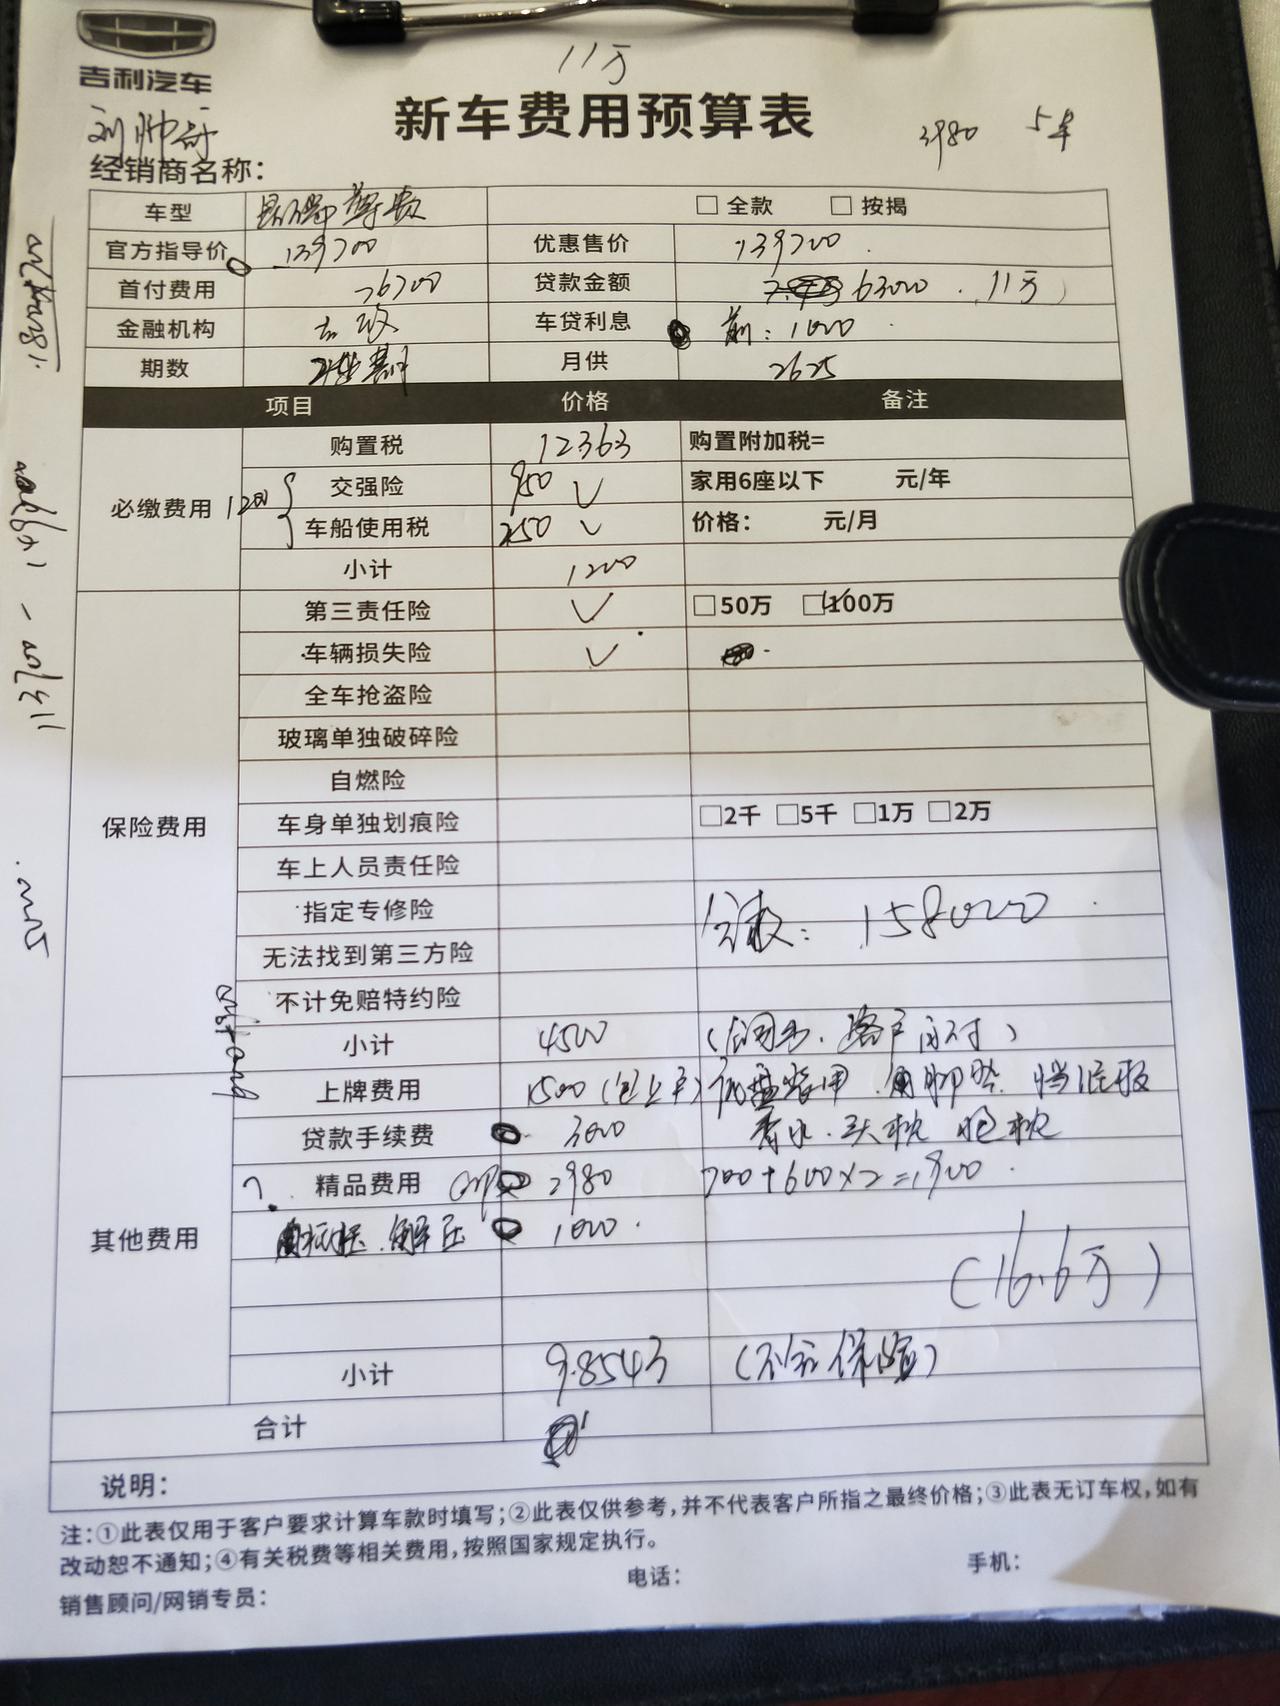 吉利汽车
11万
新车费用预算表
3980 5年
经销商名称：
车型 尊贵 □ 全款 □ 按揭
官方指导价 139700 优惠售价 139700
首付费用 76700 贷款金额 63000 . 11万
金融机构 车贷利息 前：1000
期数 月供 2625
项目 价格 备注
必缴费用 1200
购置税 12363 购置附加税=
交强险 950 ✓ 家用6座以下 元/年
车船使用税 250 ✓ 价格： 元/月
小计 1200
保险费用
第三责任险 ✓ □50万 □100万
车辆损失险 ✓
全车抢盗险
玻璃单独破碎险
自燃险
车身单独划痕险 □2千 □5千 □1万 □2万
车上人员责任险
指定专修险
全款：158000
无法找到第三方险
不计免赔特约险
小计 4500
其他费用
上牌费用 1500 底盘装甲 . 脚垫 . 挡泥板
贷款手续费 3000 香水 . 头枕 抱枕
? 精品费用 2980 700+600×2=1900
抵押 . 解压 1000
(16.6万)
小计 9.8543 (不含保险)
合计
说明：
注：①此表仅用于客户要求计算车款时填写；②此表仅供参考，并不代表客户所指之最终价格；③此表无订车权，如有
改动恕不通知；④有关税费等相关费用，按照国家规定执行。
销售顾问/网销专员： 电话： 手机：